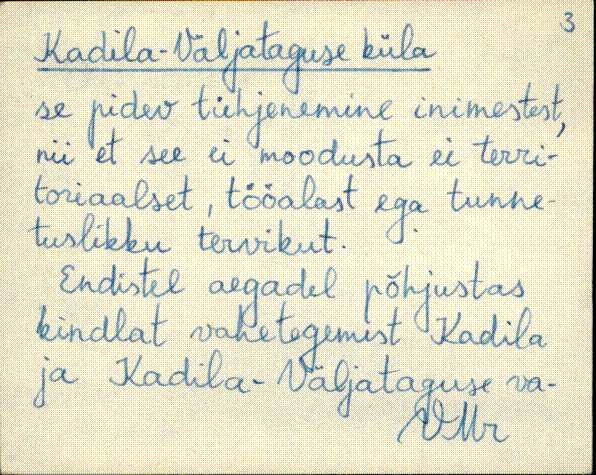 3
Kadila-Väljataguse küla
se pidev tühjenemine inimestest,
nii et see ei moodusta ei terri-
toriaalset, tööalast ega tunne-
tuslikku tervikut.
Endistel aegadel põhjustas
kindlat vahetegemist Kadila
ja Kadila-Väljataguse va-
VMr